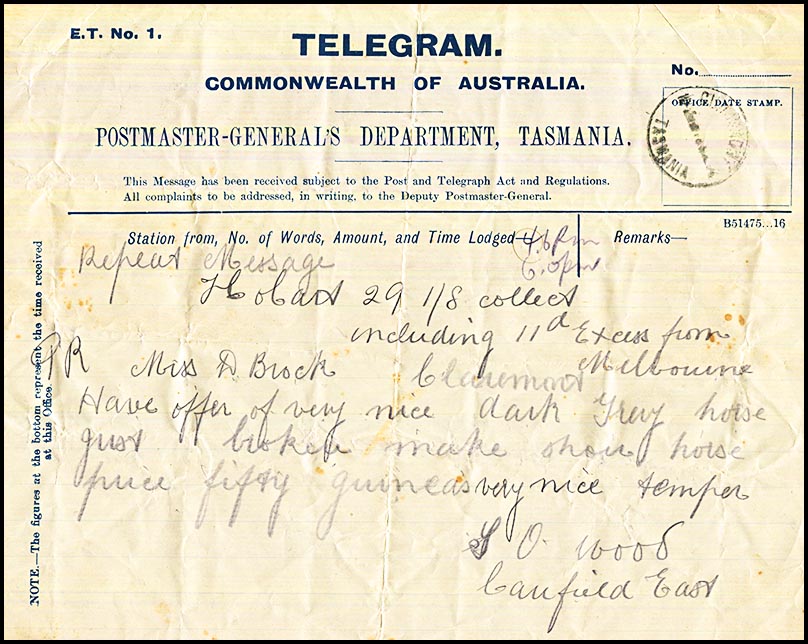 E.T. No. 1.
TELEGRAM.
COMMONWEALTH OF AUSTRALIA.
No.
OFFICE DATE STAMP.
TASMANIA
POSTMASTER-GENERAL'S DEPARTMENT, TASMANIA.
This Message has been received subject to the Post and Telegraph Act and Regulations.
All complaints to be addressed, in writing, to the Deputy Postmaster-General.
B51475...16
Station from, No. of Words, Amount, and Time Lodged—
Remarks—
Repeat Message
Hobart 29 1/8 collect
including 11d Excess from
Melbourne
PR Miss D Brock Claremont
Have offer of very nice dark Grey horse
just broken make show horse
price fifty guineas very nice temper
S O Wood
Caufield East
NOTE.—The figures at the bottom represent the time received
at this Office.